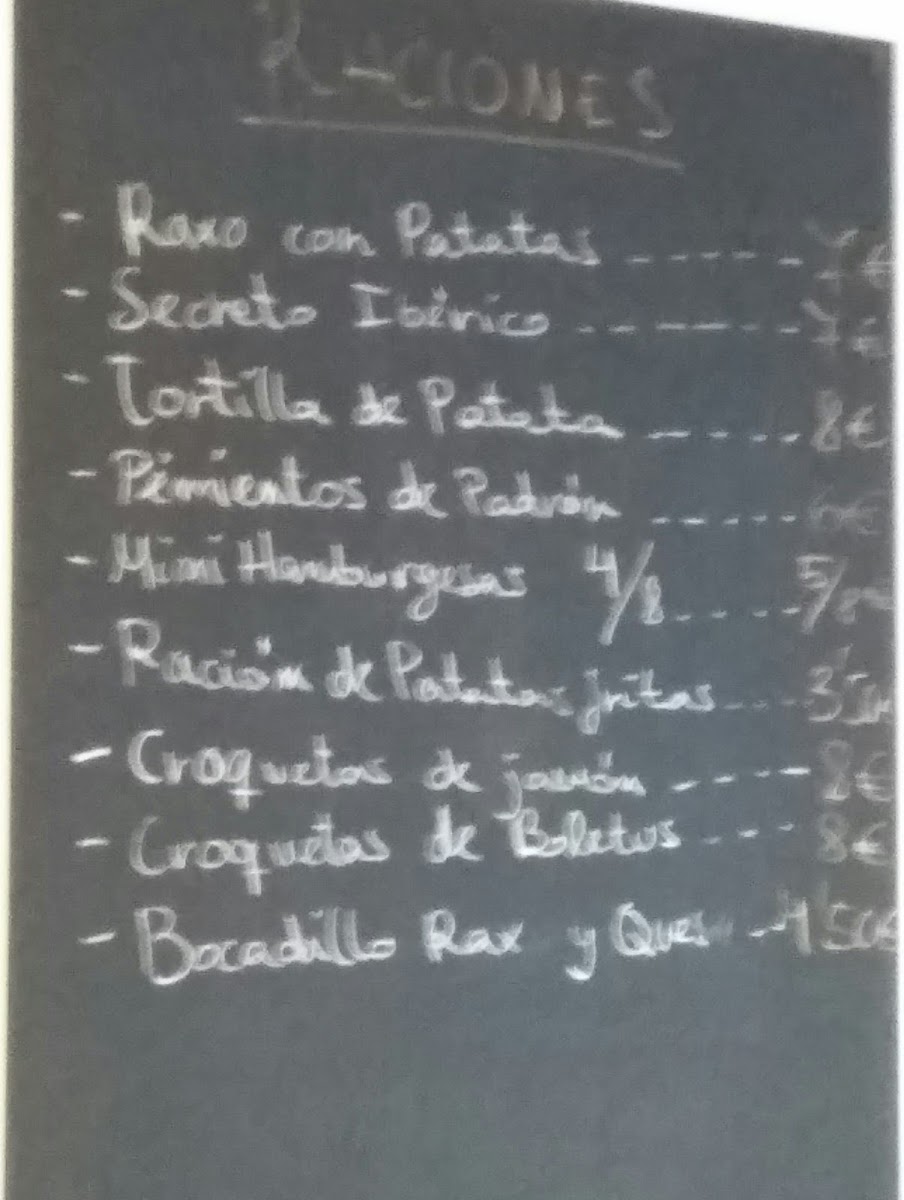 RACIONES
- Raxo con Patatas ----- 7€
- Secreto Ibérico ------- 7€
- Tortilla de Patata ----- 8€
- Pimientos de Padrón ----- 6€
- Mini Hamburgesas 4/8 ----- 5/8€
- Ración de Patatas fritas ---
- Croquetas de jamón ----- 8€
- Croquetas de Boletus ---- 8€
- Bocadillo Rax y Ques -- 4'50€